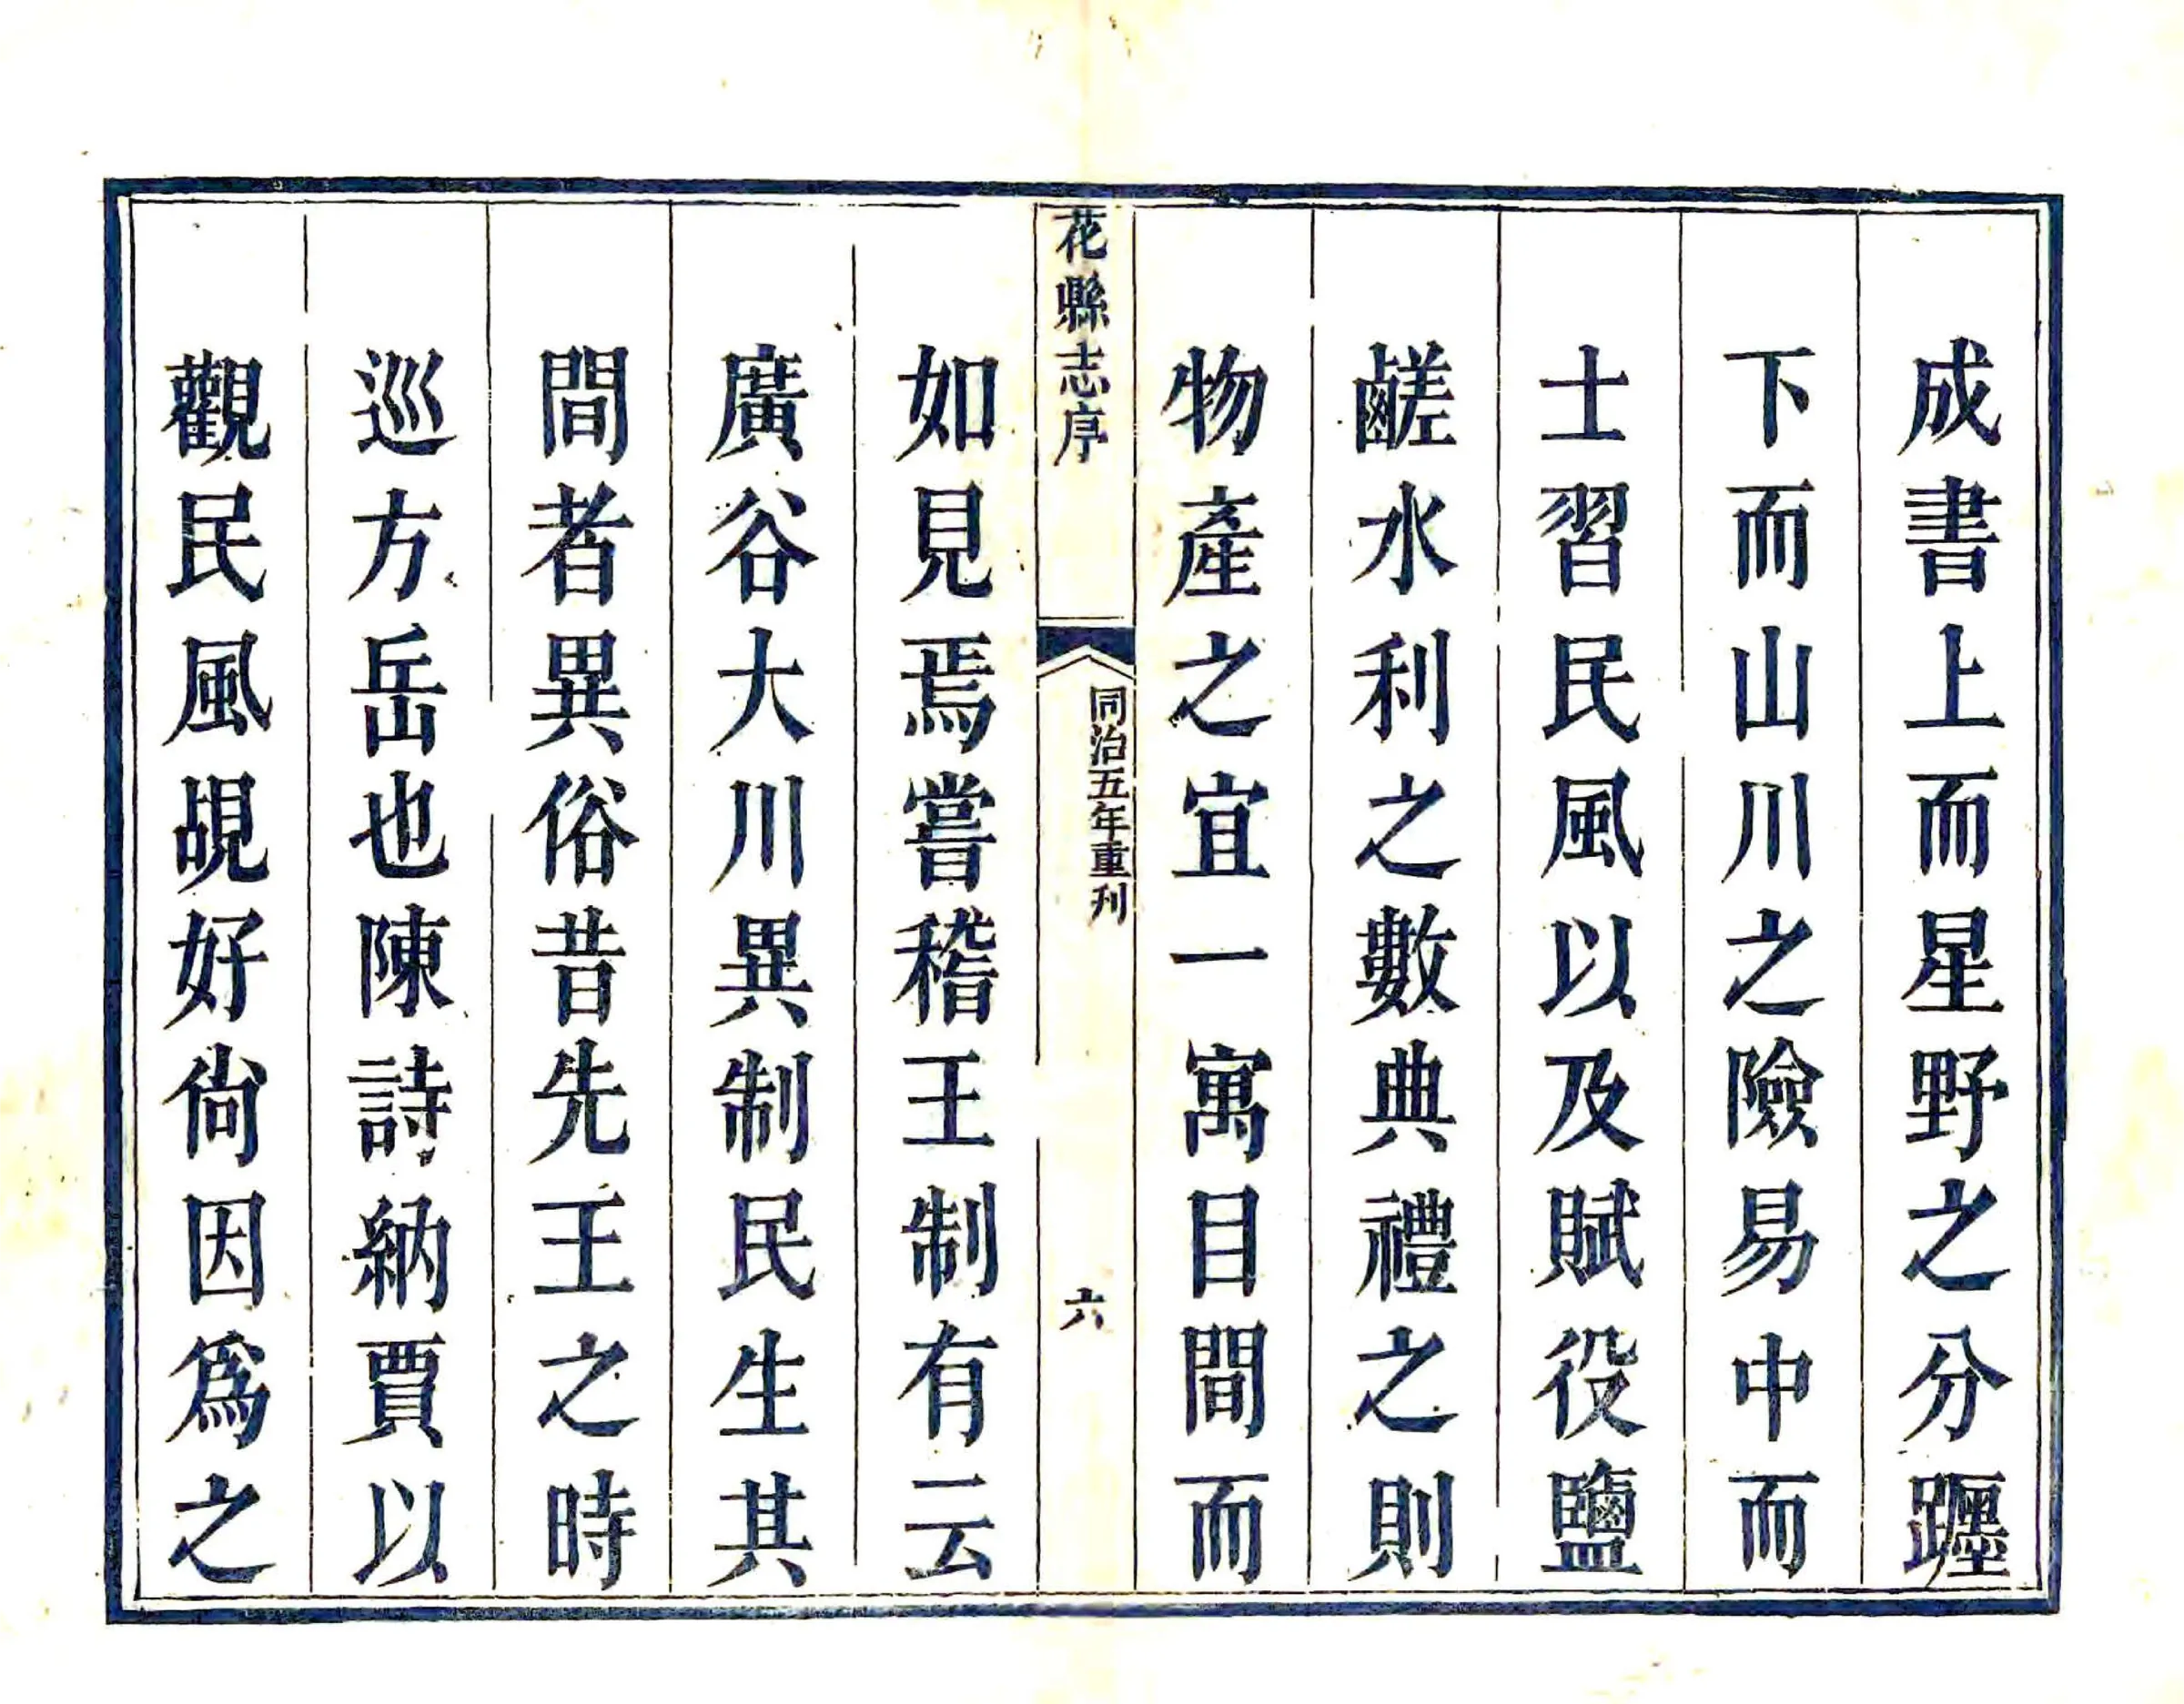 成書上而星野之分躔
下而山川之險易中而
士習民風以及賦役鹽
鹺水利之數典禮之則
物產之宜一寓目間而
花縣志序
同治五年重刋
六
如見焉嘗稽王制有云
廣谷大川異制民生其
間者異俗昔先王之時
巡方岳也陳詩納賈以
觀民風覘好尙因爲之